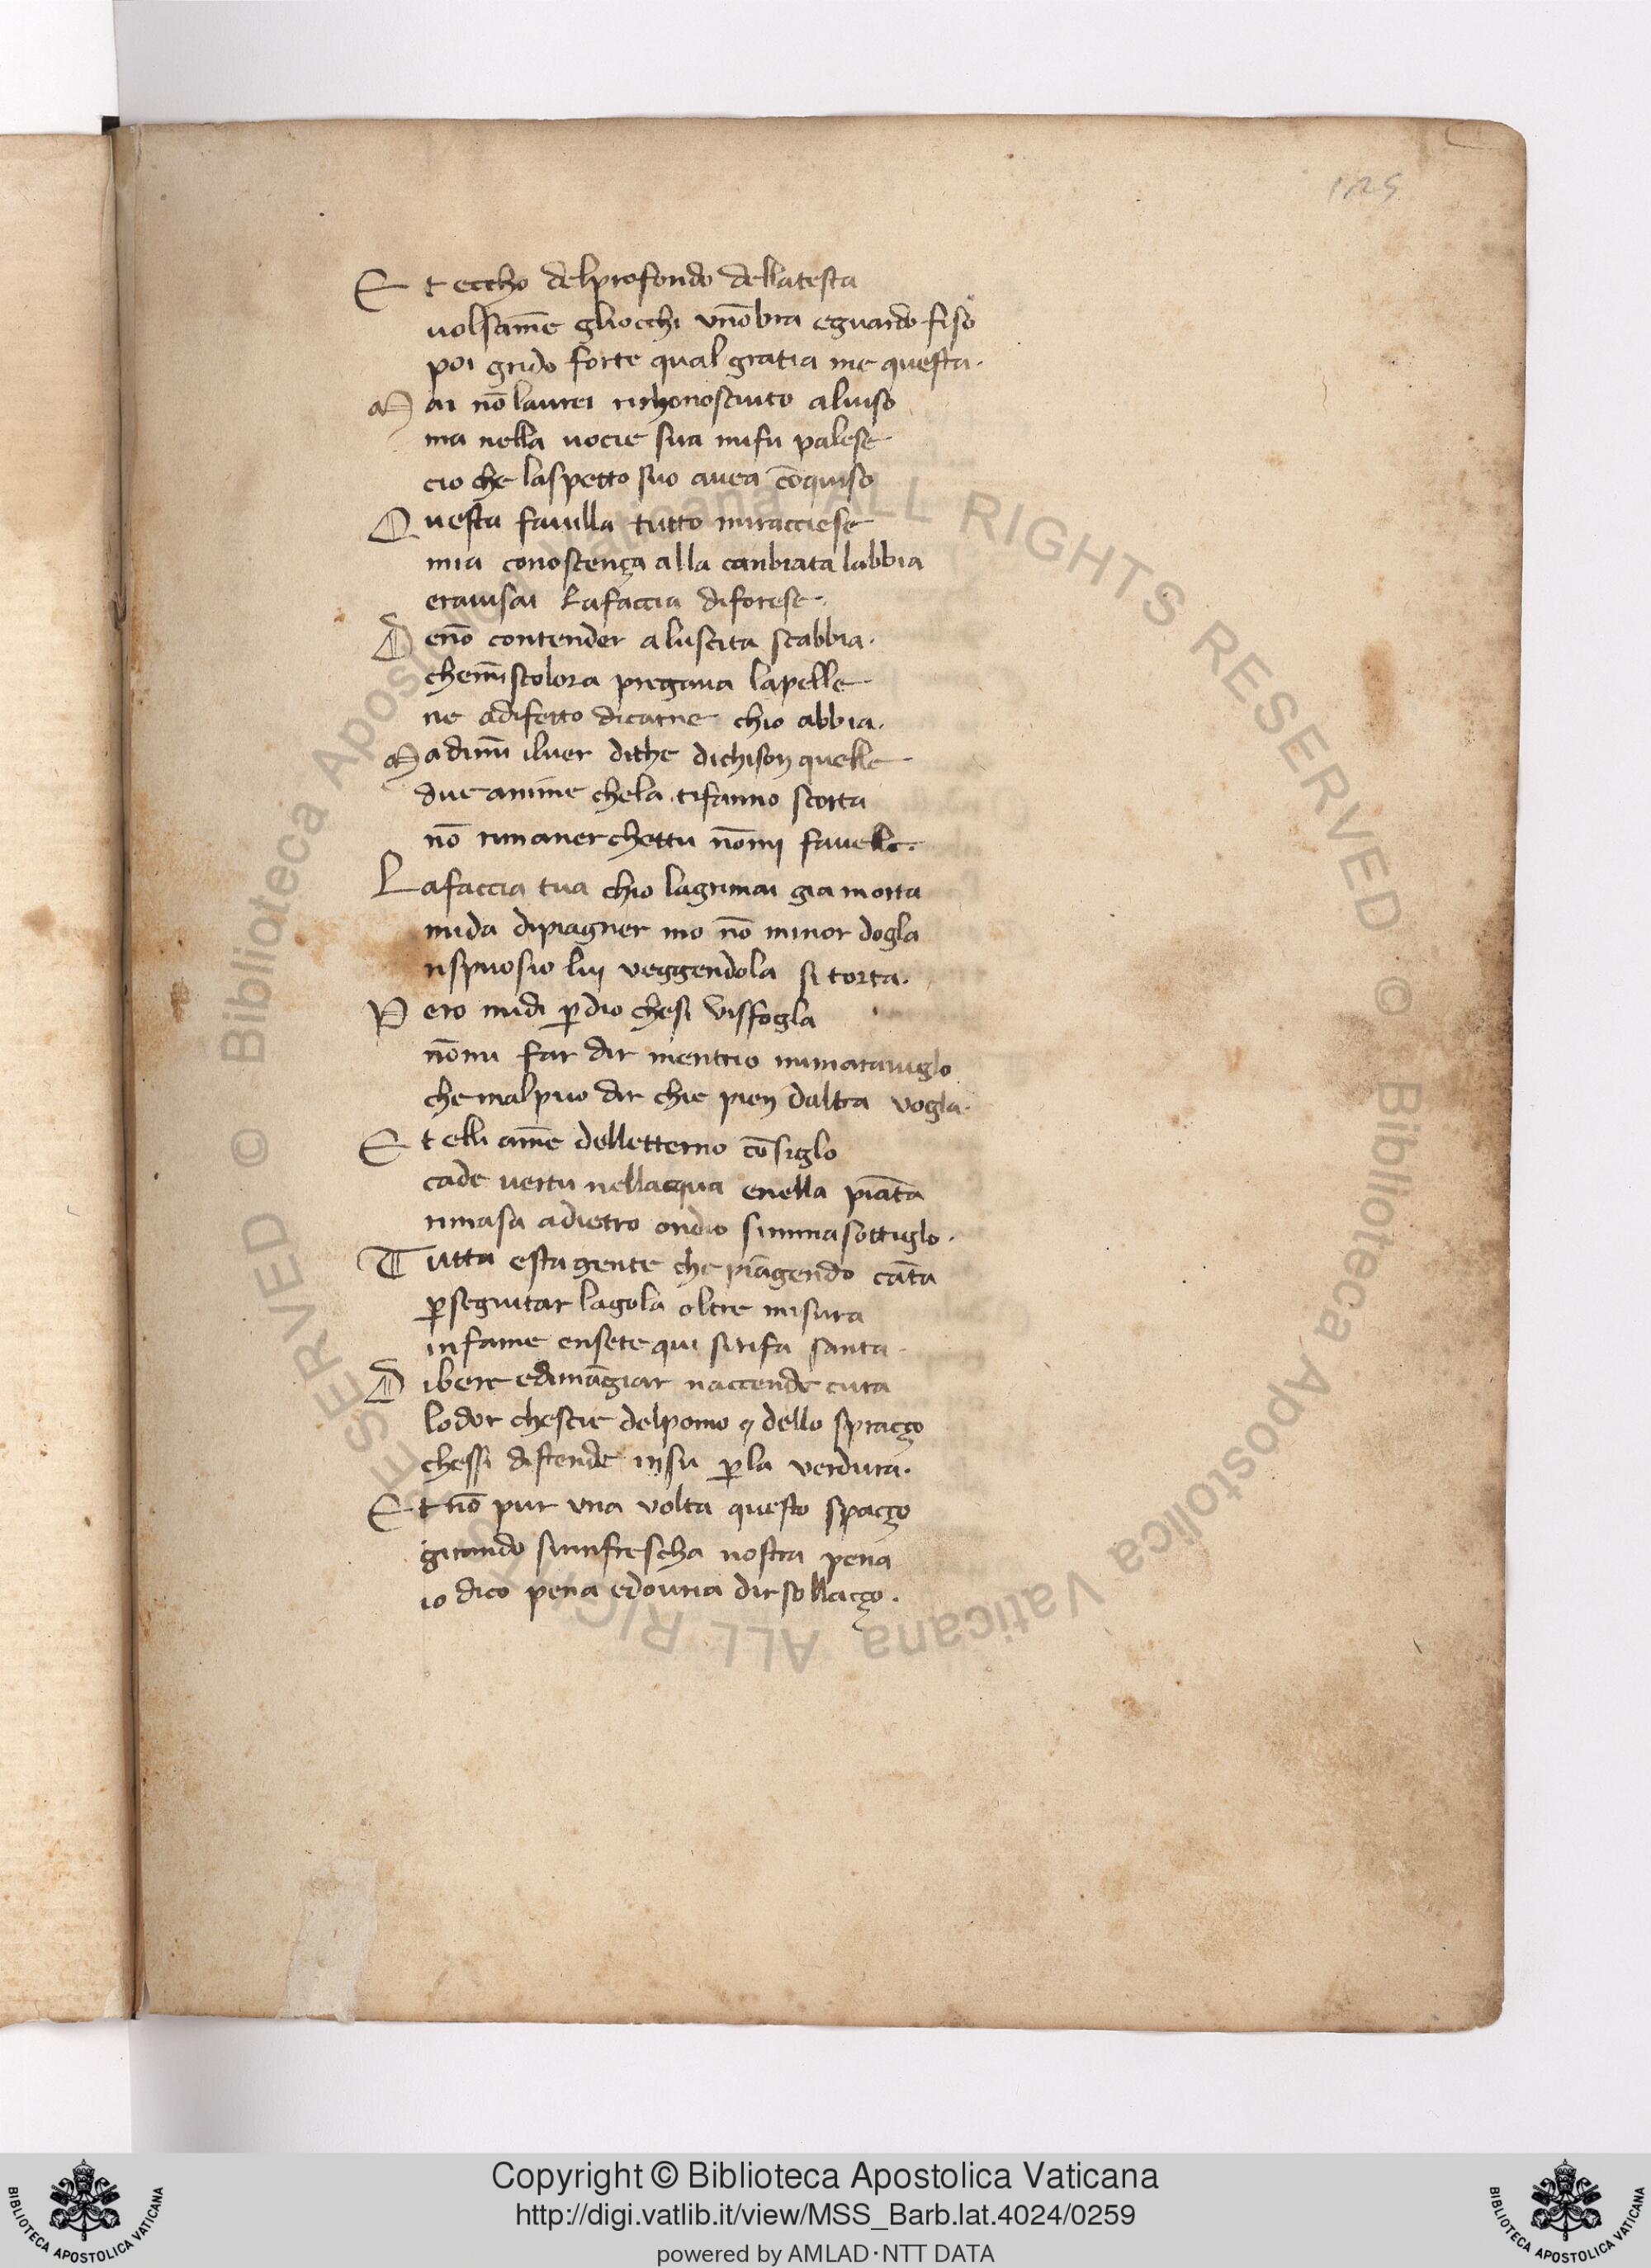 125
E t eccho delprofondo dellatesta
uolsame͞ gliocchi vno͞bra eguardo fiso
poi grido forte qual gratia me questa.
M ai no͞ laurei richonosciuto aluiso
ma nella uocie sua mifu palese
cio che laspetto suo auea co͞quiso
Q uesta fauilla tutto miracciese
mia conoscença alla canbiata labbia
erauisai lafaccia diforese.
D eno͞ contender aluscita scabbia.
chemi͞scolora pregaua lapelle
ne adifetto dicarne chio abbia.
M adimi͞ iluer dithe dichison quelle
due anime chela tifanno scorta
no͞ rimaner chettu no͞mj fauelle.
L afaccia tua chio lagrimai gia morta
mida dipiagner mo no͞ minor dogla
rispuosio luj veggendola si torta.
P ero midi p̲dio chesi visfogla
no͞mi far dir mentrio mimarauiglo
che malpuo dir chie pien daltra vogla.
E t elli ame͞ delletterno co͞siglo
cade uertu nellacqua enella pia͞ta
rimasa adietro ondio simmasottiglo.
T utta esta gente che pia͞gendo ca͞ta
p̲seguitar lagola oltre misura
infame ensete qui sirifa santa.
D ibere edima͞giar naccende cura
lodor chescie delpomo ⁊ dello spraçço
chessi distende insu p̲la verdura.
E t no͞ pur vna volta questo spaçço
girando sirinfrescha nostra pena
io dico pena edouria dir sollaçço.
© Biblioteca Apostolica Vaticana ALL RIGHTS RESERVED © Biblioteca Apostolica Vaticana ALL RIGHTS RESERVED
Copyright © Biblioteca Apostolica Vaticana
http://digi.vatlib.it/view/MSS_Barb.lat.4024/0259
powered by AMLAD·NTT DATA
BIBLIOTECA APOSTOLICA VATICANA
BIBLIOTECA APOSTOLICA VATICANA